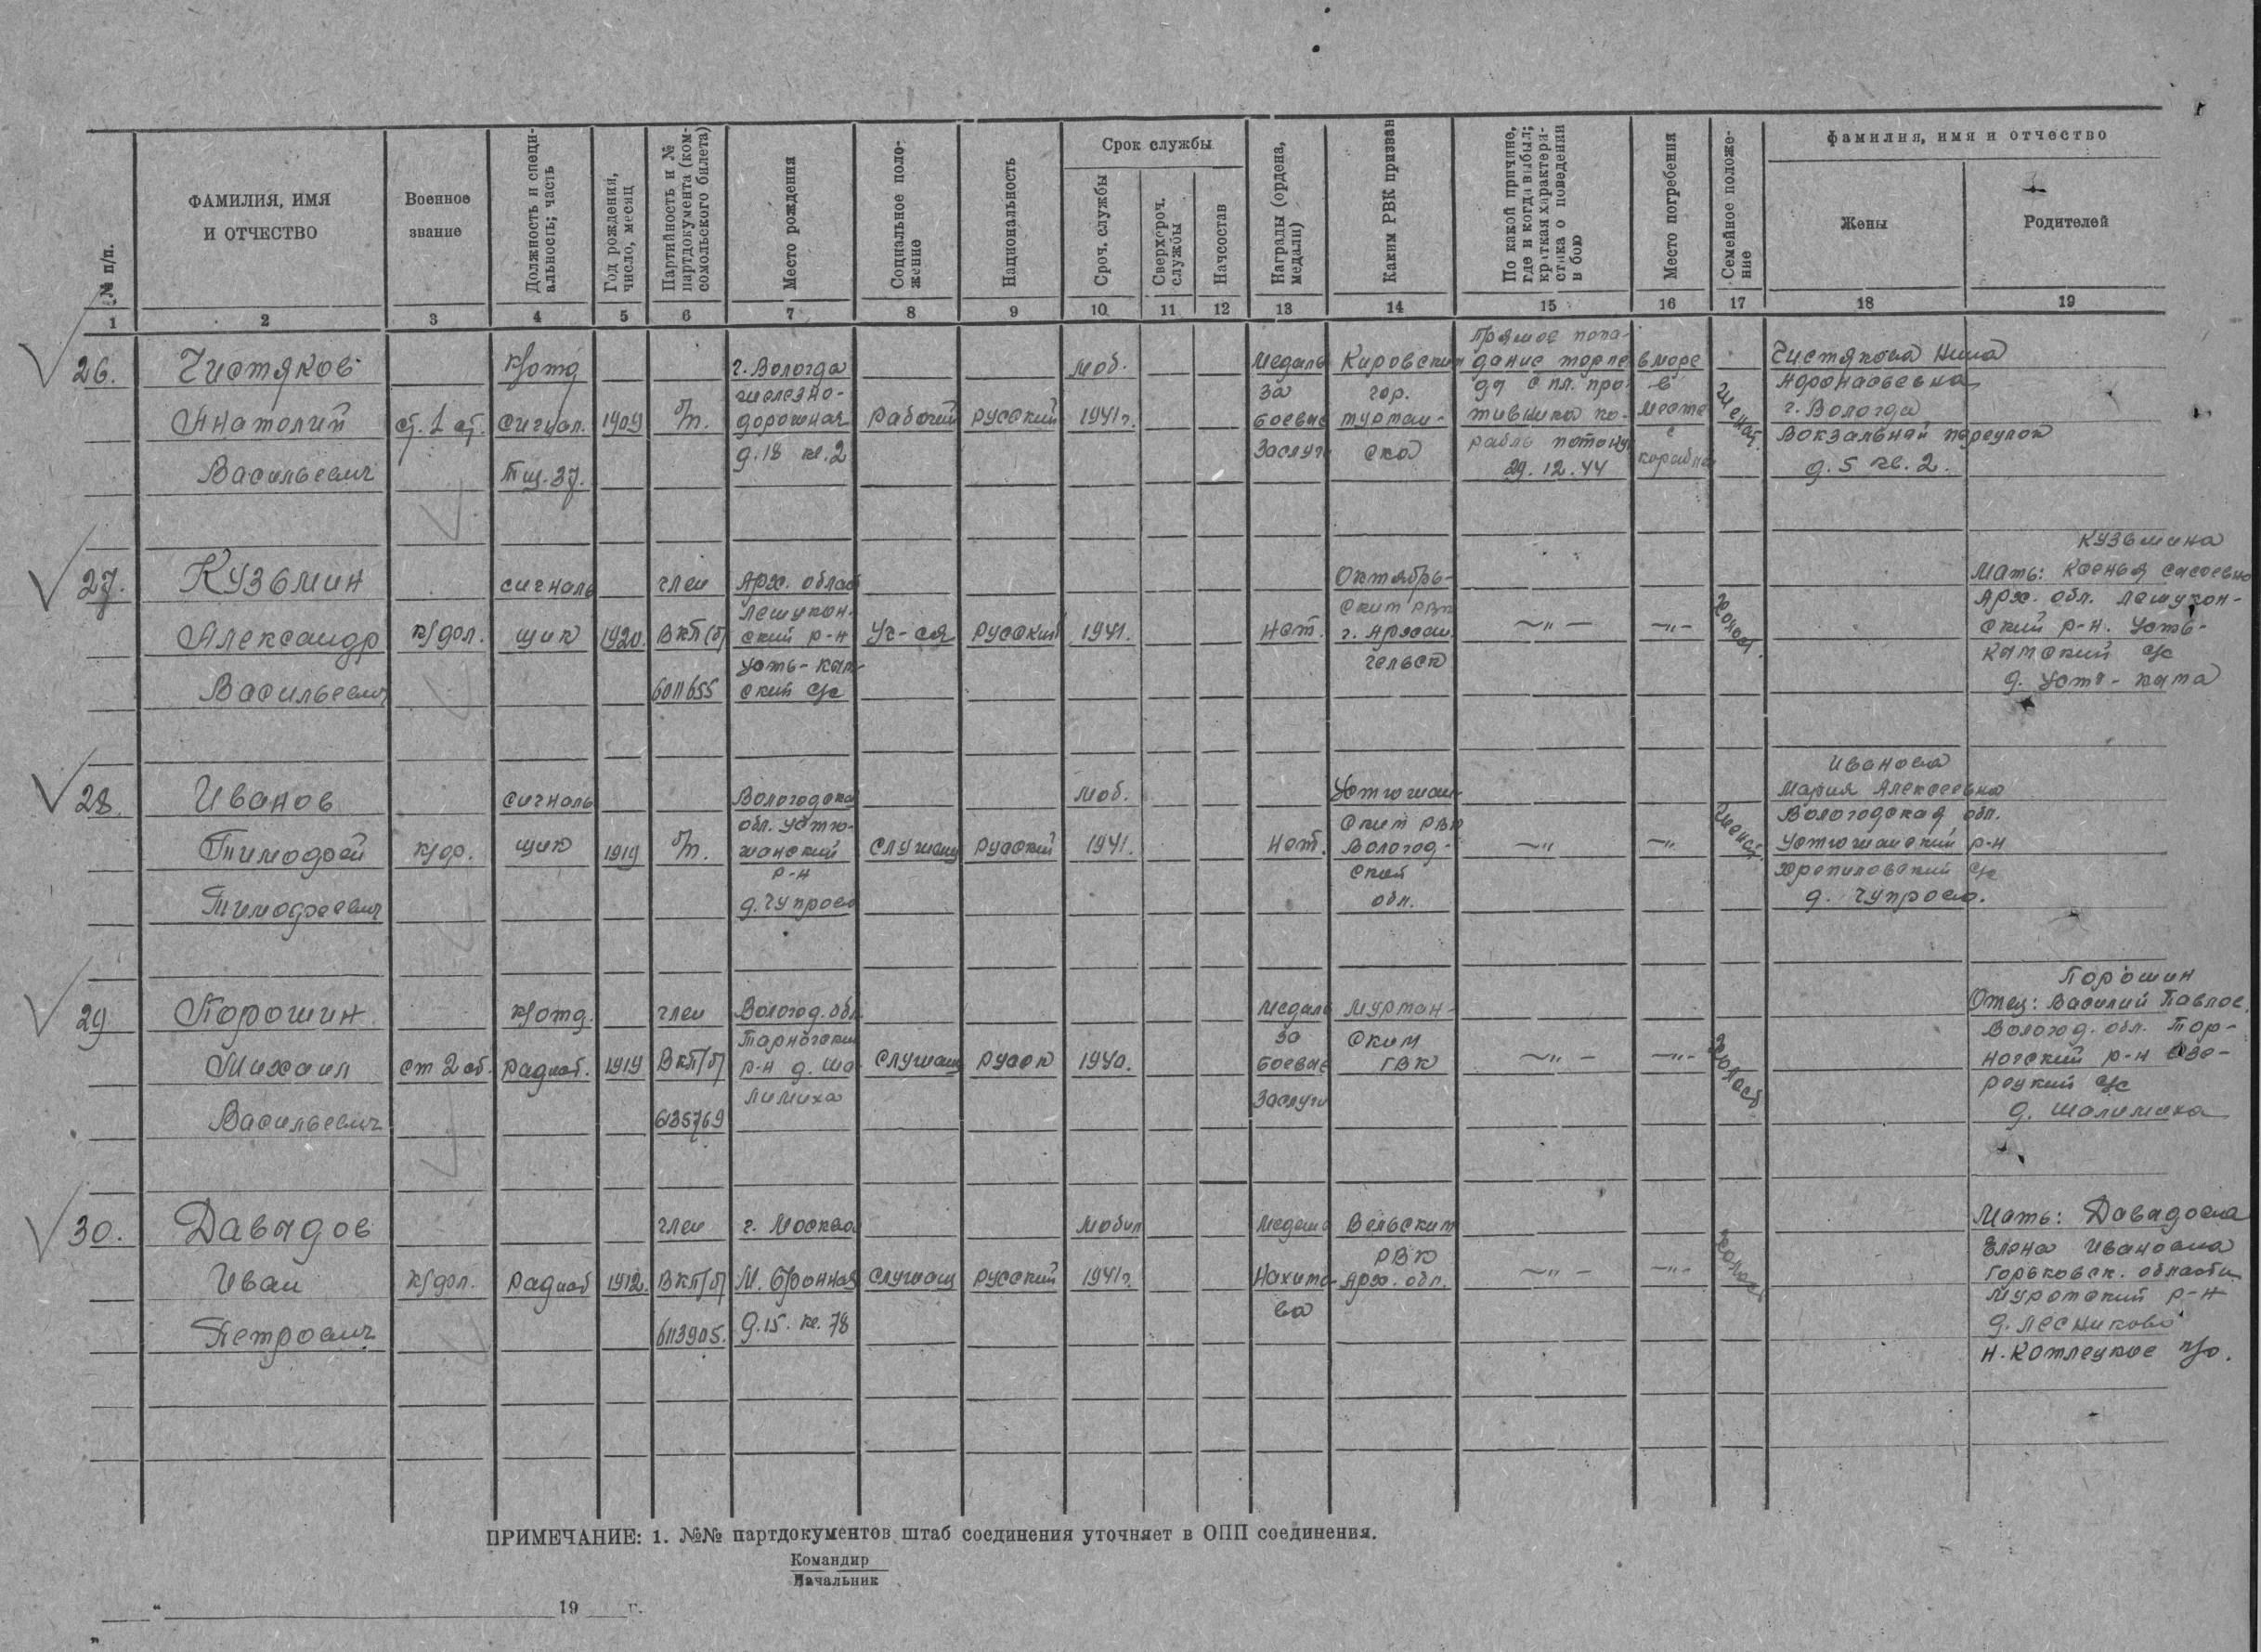 № п/п.
ФАМИЛИЯ, ИМЯ
И ОТЧЕСТВО
Военное
звание
Должность и специ-
альность; часть
Год рождения,
число, месяц
Партийность и №
партдокумента (ком-
сомольского билета)
Место рождения
Социальное поло-
жение
Национальность
Срок службы
Сроч. службы
Сверхсроч.
службы
Начсостав
Награды (ордена,
медали)
Каким РВК призван
По какой причине,
где и когда выбыл;
краткая характери-
стика о поведении
в бою
Место погребения
Семейное положе-
ние
фамилия, имя и отчество
Жены
Родителей
1 2 3 4 5 6 7 8 9 10 11 12 13 14 15 16 17 18 19
26.
Чистяков
Анатолий
Васильевич
ст. 1 ст.
к/отд
сигнал.
Тщ. 37.
1909
б/п.
г. Вологда
железно-
дорожная
д. 18 кв. 2
рабочий
русский
моб.
1941 г.
Медаль
За
боевые
заслуги
Кировским
гор.
Мурман-
ска
Прямое попа-
дание торпе
ды с пл. про-
тивника ко-
рабль потонул
29.12.44
в море
в
месте
с
кораблем
Женат.
Чистякова Нина
Афонасьевна
г. Вологда
Вокзальный переулок
д. 5 кв. 2.
27.
Кузьмин
Александр
Васильевич
к/фл.
сигналь
щик
1920.
член
ВКП(б)
6011655
Арх. област
Лешукон-
ский р-н
Усть-Кам-
ский с/с
Уч-ся
русский
1941.
Нет.
Октябрь-
ским РВК
г. Архан
гельск
—"—
—"—
Холост.
Кузьмина
Мать: Ксенья Сысоевна
Арх. обл. Лешукон-
ский р-н. Усть-
камский с/с
д. Усть-кыма
28.
Иванов
Тимофей
Тимофеевич
к/ф.
сигналь
щик
1919
б/п.
Вологодская
обл. Устю-
жанский
р-н
д. Чупрово
Служащ
русский
моб.
1941.
Нет.
Устюжан-
ским РВК
Вологод-
ской
обл.
—"
—"
Женат.
Иванова
Мария Алексеевна
Вологодская обл.
Устюжанский р-н
Хрепиловский с/с
д. Чупрово.
29
Порошин
Михаил
Васильевич
ст 2 ст.
к/отд.
радист.
1919
член
ВКП/б/
6135769
Вологод. обл
Тарногский
р-н д. Ша
лимиха
Служащ
русск
1940.
Медаль
За
боевые
заслуги
Мурман-
ским
ГВК
—"—
—"-
Холост
Порошин
Отец: Василий Павлов.
Вологод. обл. Тор-
ногский р-н Озе-
рецкий с/с
д. Шалимиха
30.
Давыдов
Иван
Петрович
к/фл.
радист
1912.
член
ВКП/б/
6113905.
г. Москва
М. Бронная
д. 15. кв. 78
Служащ
русский
мобил
1941 г.
Медаль
Нахимо-
ва
Вельским
РВК
Арх. обл.
—"—
—"-
холост
Мать: Давыдова
Елена Ивановна
Горьковск. области
Муромский р-н
д. Лесниково
Н. Котлецкое п/о.
ПРИМЕЧАНИЕ: 1. №№ партдокументов штаб соединения уточняет в ОПП соединения.
Командир
Начальник
" 19 г.